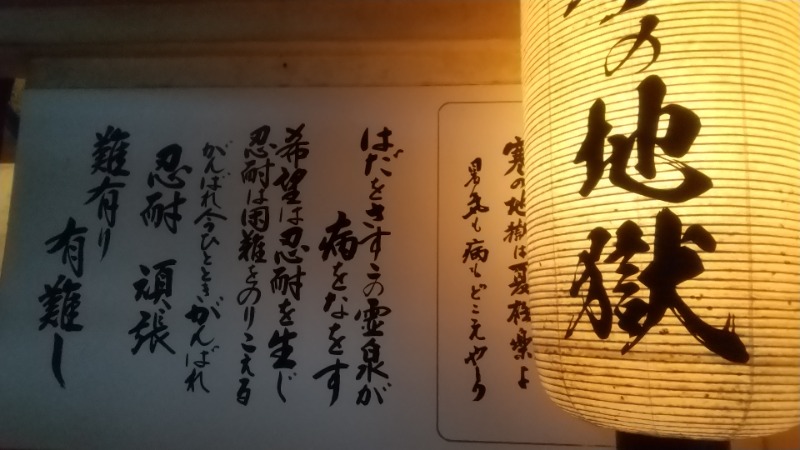 の地獄
寒の地獄は夏極楽よ
男気も病もどこえやら
はだをさすこの霊泉が
病をなをす
希望は忍耐を生じ
忍耐は困難をのりこえる
がんばれ今ひとときがんばれ
忍耐 頑張
難有り
有難し